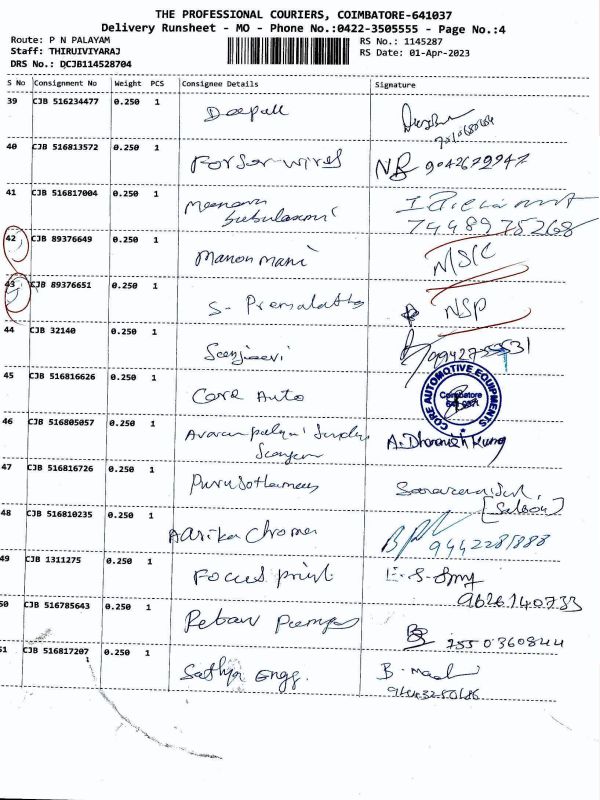 THE PROFESSIONAL COURIERS, COIMBATORE-641037
Delivery Runsheet - MO - Phone No.:0422-3505555 - Page No.:4
Route: P N PALAYAM RS No.: 1145287
Staff: THIRUIVIYARAJ RS Date: 01-Apr-2023
DRS No.: DCJB114528704
S No Consignment No Weight PCS Consignee Details Signature
39 CJB 516234477 0.250 1 Deepak
40 CJB 516813572 0.250 1 Forsor-wires NB 9042629947
41 CJB 516817004 0.250 1 Meenam
Subulaxmi 7448975268
42 CJB 89376649 0.250 1 Manonmani NSC
43 CJB 89376651 0.250 1 S. Premalatha NSP
44 CJB 32140 0.250 1 Sanjeevi
45 CJB 516816626 0.250 1 Core Auto CORE AUTOMOTIVE EQUIPMENTS Coimbatore
46 CJB 516805057 0.250 1 A. Dharanish Kumar
47 CJB 516816726 0.250 1 Purusothaman
[Saloon]
48 CJB 516810235 0.250 1 Aarika Chromer 9442281888
49 CJB 1311275 0.250 1 Focus print E.S.
9626140733
50 CJB 516785643 0.250 1 Pumps 7550360844
51 CJB 516817207 0.250 1 Sathya Engg. B.